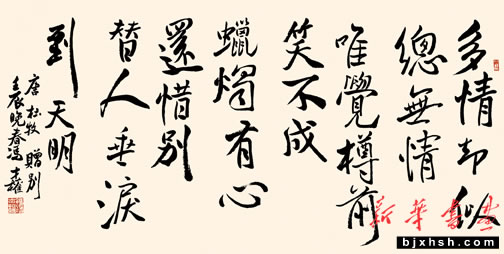 多情却似
總無情
唯覺樽前
笑不成
蠟燭有心
還惜别
替人垂淚
到天明
唐杜牧贈别
壬辰晚春馮士耀
新華書畫
bjxhsh.com